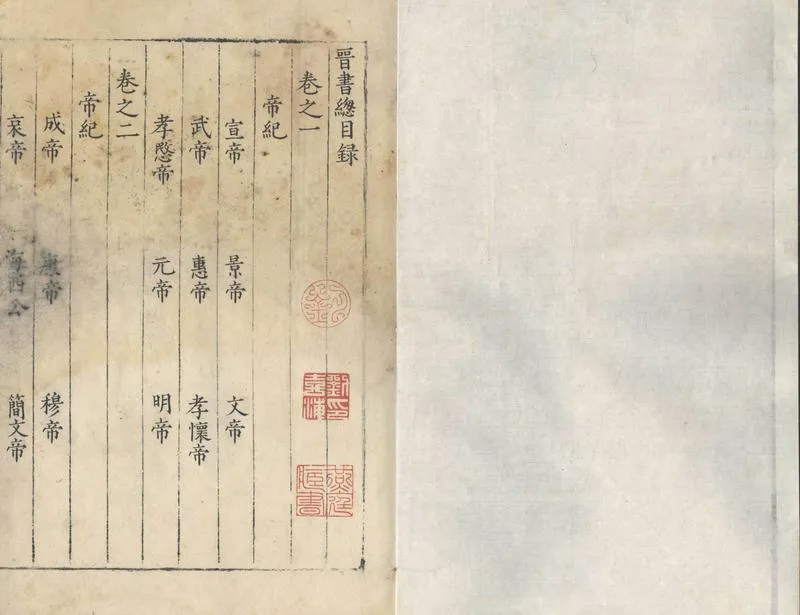 晉書總目錄
卷之一
帝紀
宣帝 景帝 文帝
武帝 惠帝 孝懷帝
孝愍帝 元帝 明帝
卷之二
帝紀
成帝 康帝 穆帝
哀帝 海西公 簡文帝
燕庭藏書